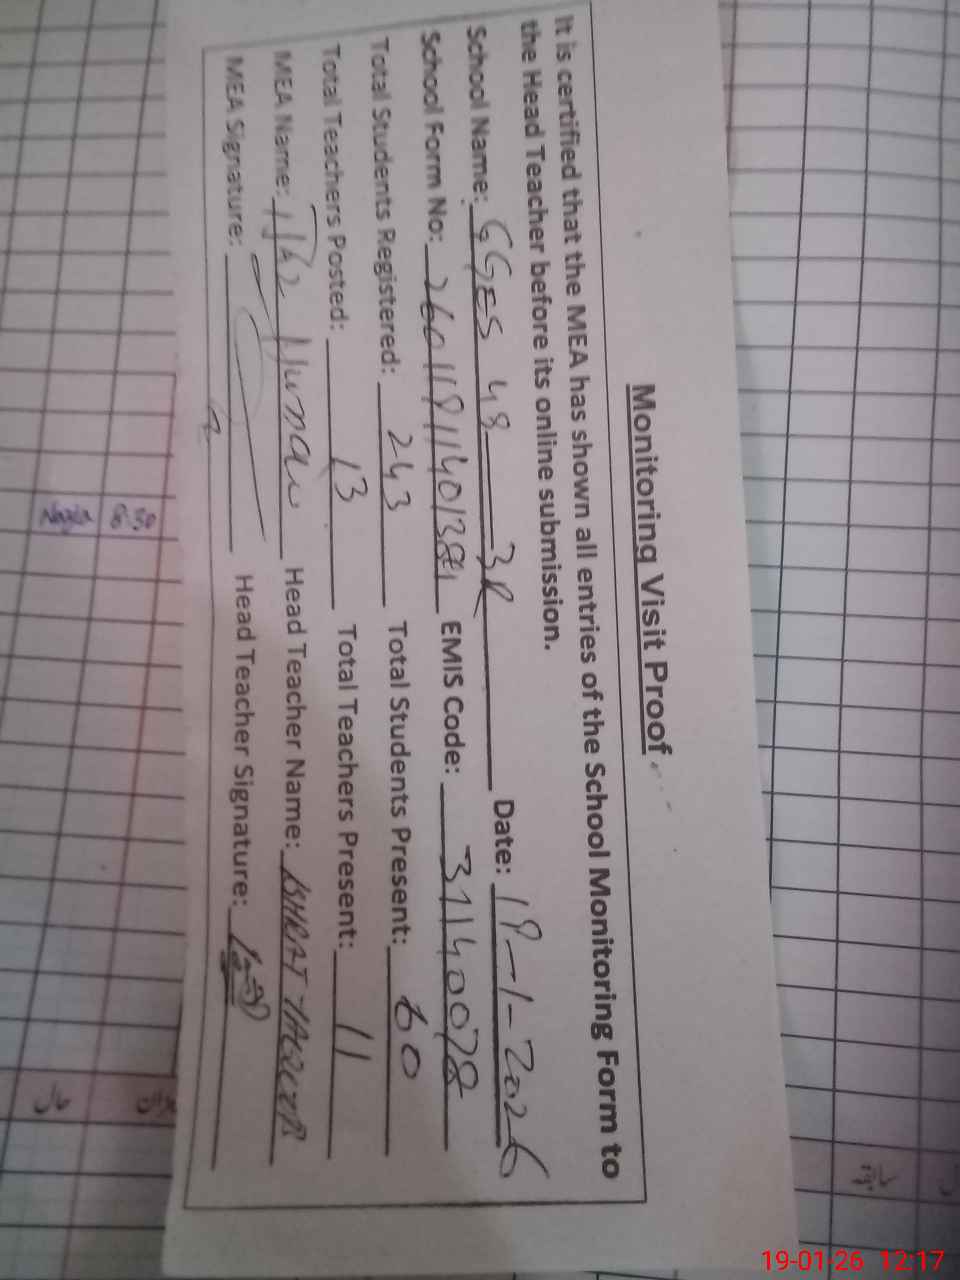 Monitoring Visit Proof
It is certified that the MEA has shown all entries of the School Monitoring Form to
the Head Teacher before its online submission.
School Name: GGES 48 3R Date: 19-1-2026
School Form No: EMIS Code: 31140078
Total Students Registered: 243 Total Students Present: 60
Total Teachers Posted: 13 Total Teachers Present: 11
MEA Name: Head Teacher Name: ISHRAT YAQOOB
MEA Signature: Head Teacher Signature:
19-01-26 12:17